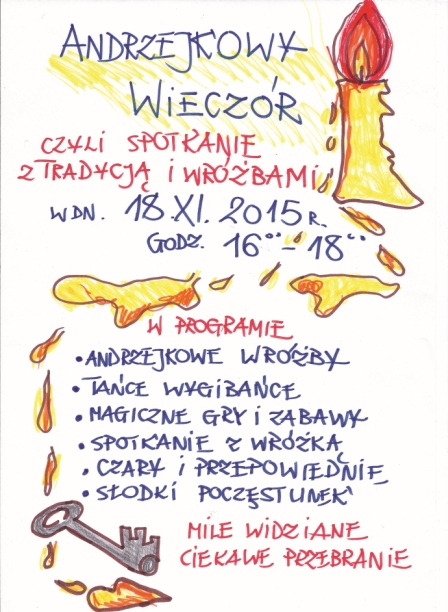 ANDRZEJKOWY
WIECZÓR
CZYLI SPOTKANIE
Z TRADYCJĄ I WRÓŻBAMI
W DN. 18 XI. 2015 R.
GODZ. 16°° - 18°°
W PROGRAMIE
• ANDRZEJKOWE WRÓŻBY
• TAŃCE WYGIBAŃCE
• MAGICZNE GRY I ZABAWY
• SPOTKANIE Z WRÓŻKĄ
• CZARY I PRZEPOWIEDNIE
• SŁODKI POCZĘSTUNEK
MILE WIDZIANE
CIEKAWE PRZEBRANIE